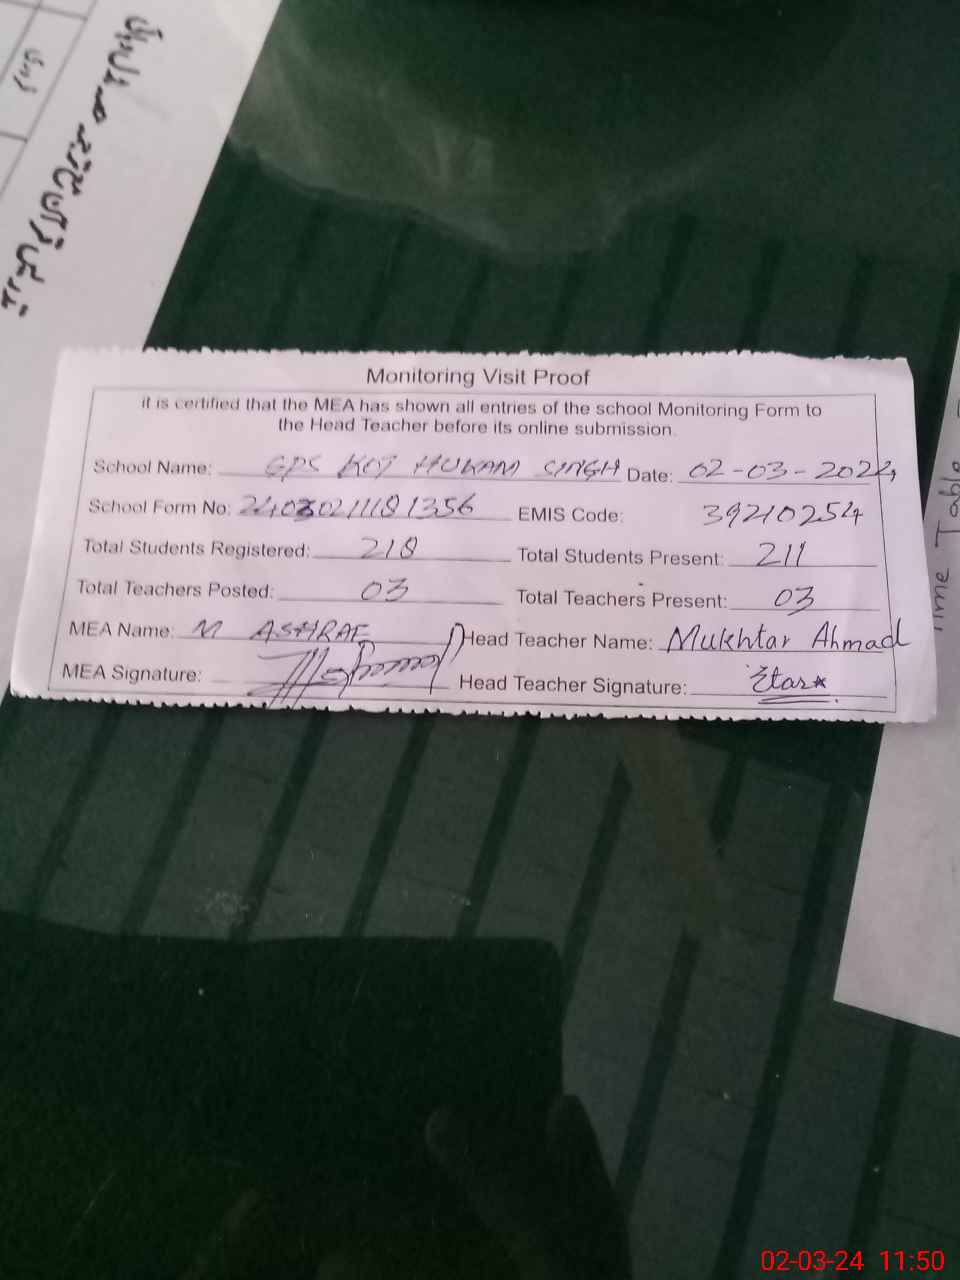 Monitoring Visit Proof
it is certified that the MEA has shown all entries of the school Monitoring Form to
the Head Teacher before its online submission.
School Name: GPS KOT HUKAM SINGH Date: 02-03-2024
School Form No: 24030211181356 EMIS Code: 39210254
Total Students Registered: 218 Total Students Present: 211
Total Teachers Posted: 03 Total Teachers Present: 03
MEA Name: M ASHRAF Head Teacher Name: Mukhtar Ahmad
MEA Signature: Head Teacher Signature:
Time Table
02-03-24 11:50